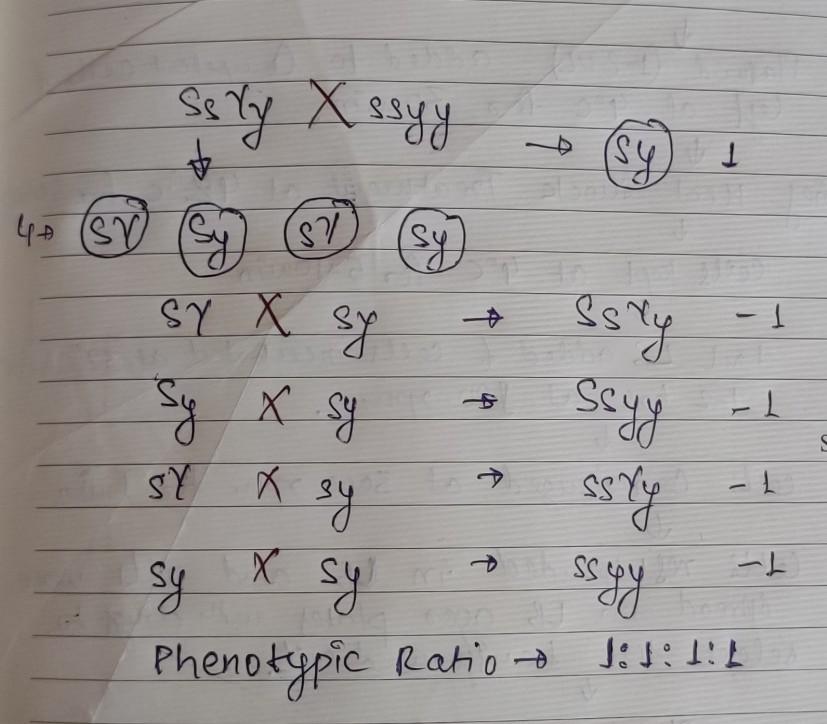 SsYy X ssyy → sy 1
↓
4→ SY Sy sY sy
SY X sy → SsYy - 1
Sy X sy → Ssyy - 1
sY X sy → ssYy - 1
sy X sy → ssyy - 1
Phenotypic Ratio → 1:1:1:1